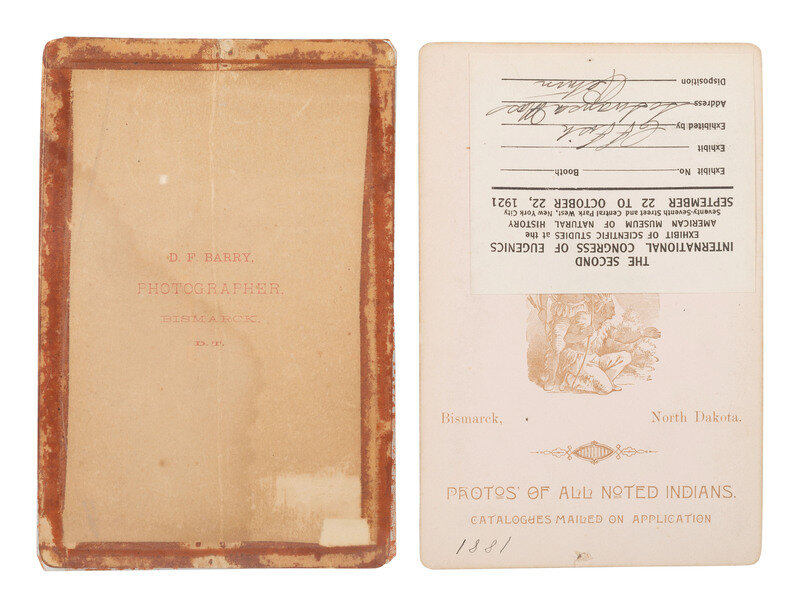 D. F. BARRY,
PHOTOGRAPHER,
BISMARCK,
D. T.
THE SECOND
INTERNATIONAL CONGRESS OF EUGENICS
EXHIBIT OF SCIENTIFIC STUDIES at the
AMERICAN MUSEUM OF NATURAL HISTORY
Seventy-Seventh Street and Central Park, West, New York City
SEPTEMBER 22 TO OCTOBER 22, 1921
Exhibit No. Booth
Exhibit
Exhibited by
Address
Disposition Return
Bismarck, North Dakota.
PHOTOS' OF ALL NOTED INDIANS.
CATALOGUES MAILED ON APPLICATION
1881